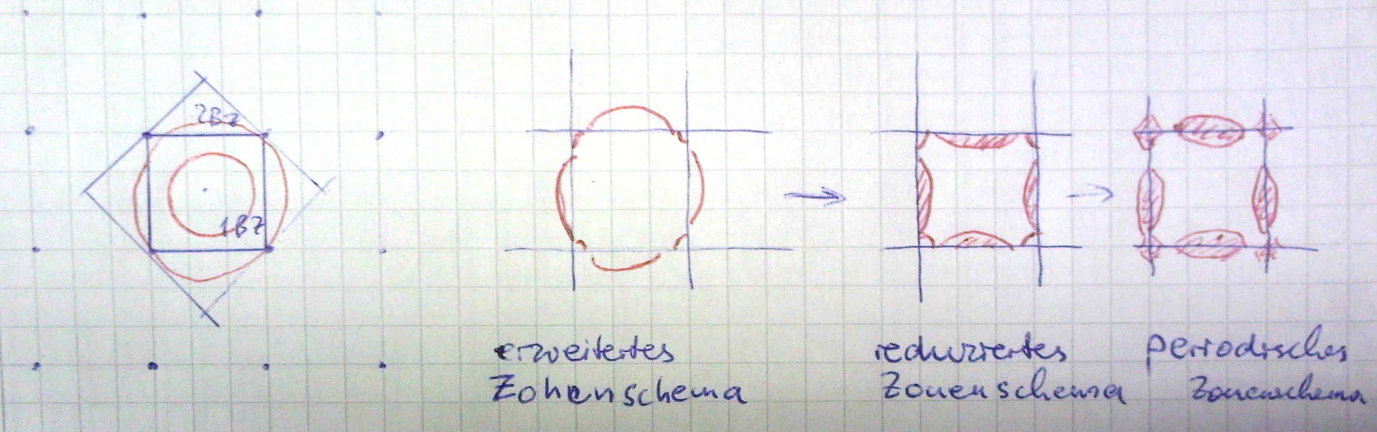 2BZ
1BZ
erweitertes
Zonenschema
reduziertes
Zonenschema
periodisches
Zonenschema